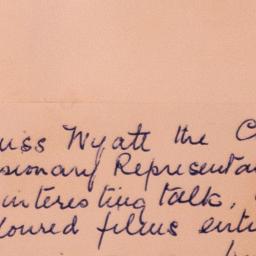 uss Wyatt the C
sionary Representa
interesting talk,
loured films enti